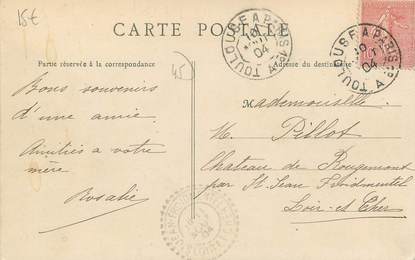 15€
CARTE POSTALE
TOULOUSE A PARIS
04
TOULOUSE A PARIS
04
Partie réservée à la correspondance
45
Adresse du destinataire
Bons souvenirs
d'une amie.
Amitiés a votre
mère
Rosalie
Mademoiselle
M. Pillot
Chateau de Rougemont
par St Jean Froidmentel
Loir-et Cher